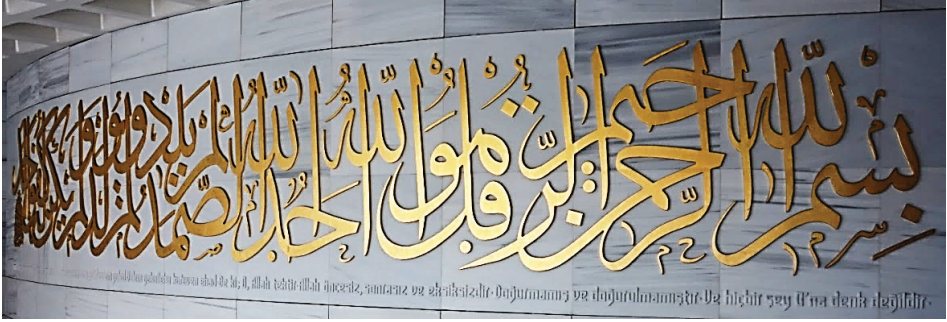 بِسْمِ اللّٰهِ الرَّحْمٰنِ الرَّحِيمِ قُلْ هُوَ اللّٰهُ أَحَدٌ اللّٰهُ الصَّمَدُ لَمْ يَلِدْ وَلَمْ يُولَدْ وَلَمْ يَكُنْ
de ki; O, Allah tektir·Allah öncesiz, sonrasız ve eksiksizdir·Doğurmamış ve doğurulmamıştır·Ve hiçbir şey O'na denk değildir·